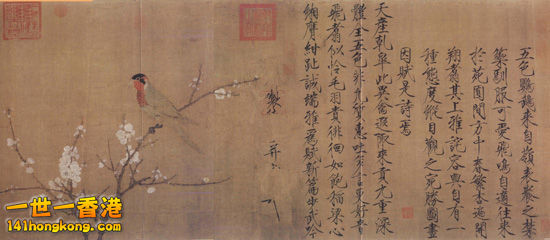 五色鸚鵡來自嶺表養之禁
籞馴服可愛飛鳴自適往來
於苑囿間方中春繁杏遍開
翔翥其上雅詫容與自有一
種態度縱目觀之宛勝圖畫
因賦是詩焉
天產乾皋此異禽遐陬來貢九重深
體全五色非凡質惠吐多言更好音
飛翥似怜毛羽貴徘徊如飽稻粱心
緗膺紺趾誠端雅為賦新篇步武吟
一世一香港
141hongkong.com